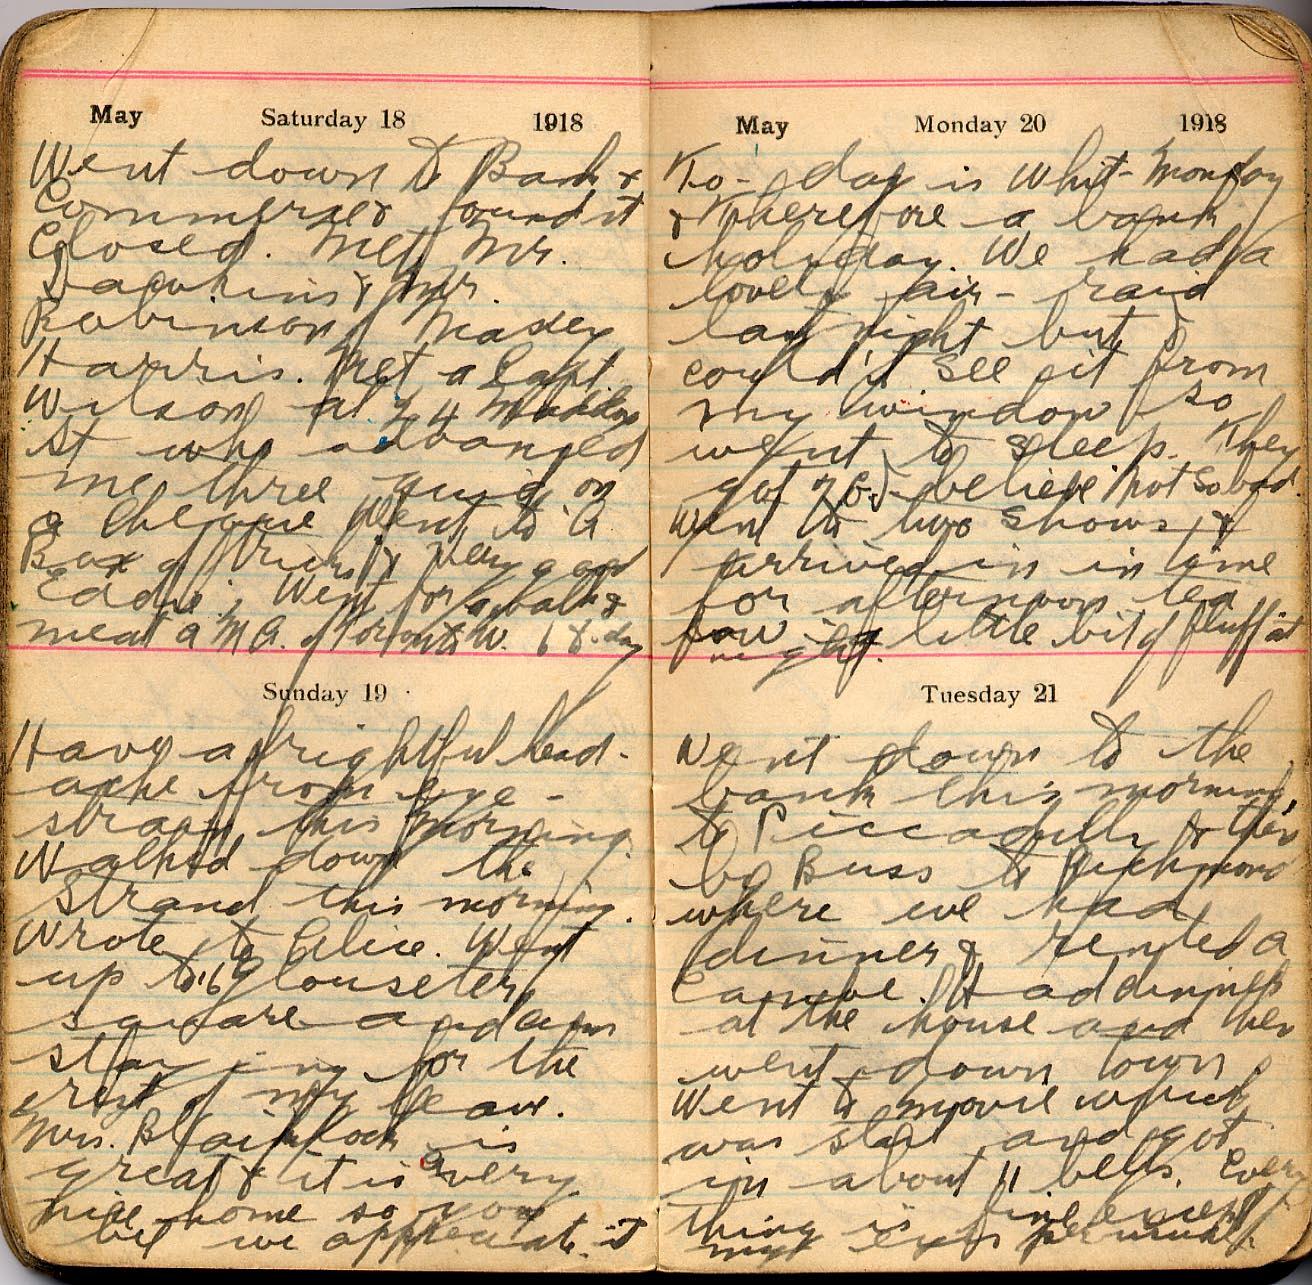 May Saturday 18 1918
Went down to Bank &
Commerse & found it
Closed. Met Mr.
Dawkins & Mr.
Robinson of Massey
Harris. Met a Capt.
Wilson at 24 Maddox
St who advanced
me three quid on
a Cheque Went to "A
Box of Tricks" & very good
Eddie & I Went for a walk &
meat a M.A. of Toronto W. 68. day
Sunday 19
Have a frightful head-
ache from eye-
strain this morning.
Walked down the
Strand this morning.
Wrote to Alice. Went
up to 16 Glouseter
square and am
staying for the
rest of my leave.
Mrs. Blaiklock is
great & it is a very
nice home so you
bet we appreciate it
May Monday 20 1918
To-day is Whit-Monday
& Therefore a bank
holiday. We had a
lovely air-raid
last night but I
could't see it from
my window so
went to sleep. They
got 7 G's I believe not so bad.
Went to two shows &
arrived in in time
for afternoon tea
saw a little bit of fluff at
night.
Tuesday 21
Went down to the
bank this morning,
to Piccadilly & then
by Buss to Richmond
where we had
dinner & rented a
Canoe. Had dinner
at the house and then
went down town.
Went to movie which
was slow and got
in about 11 bells. Every
thing is fine except
my eyes